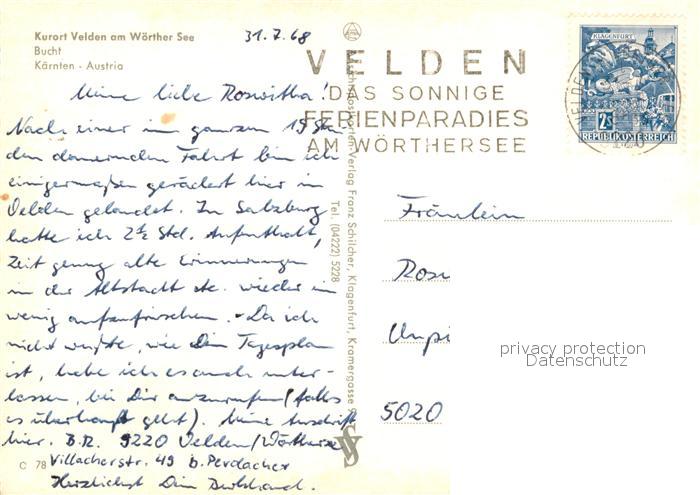 Kurort Velden am Wörther See
Bucht
Kärnten - Austria
31. 7. 68
VELDEN
DAS SONNIGE
FERIENPARADIES
AM WÖRTHERSEE
KLAGENFURT
2S
REPUBLIK ÖSTERREICH
Meine liebe Roswitha!
Nach einer im ganzen 19 Stun-
den dauernden Fahrt bin ich
einigermaßen gerädert hier in
Velden gelandet. In Salzburg
hatte ich 2½ Std. Aufenthalt,
Zeit genug alte Erinnerungen
in der Altstadt etc. wieder ein
wenig aufzufrischen. - Da ich
nicht wußte, wie Dein Tagesplan
ist, habe ich es auch unter-
lassen, bei Dir anzurufen (falls
es überhaupt geht). Meine Anschrift
hier. 9220 Velden/Wörthersee
Villacherstr. 49 b. Perdacher
Herzlichst Dein
C 78
Verlag Franz Schilcher, Klagenfurt, Kramergasse
Tel. (04222) 5228
Fräulein
5020
privacy protection
Datenschutz